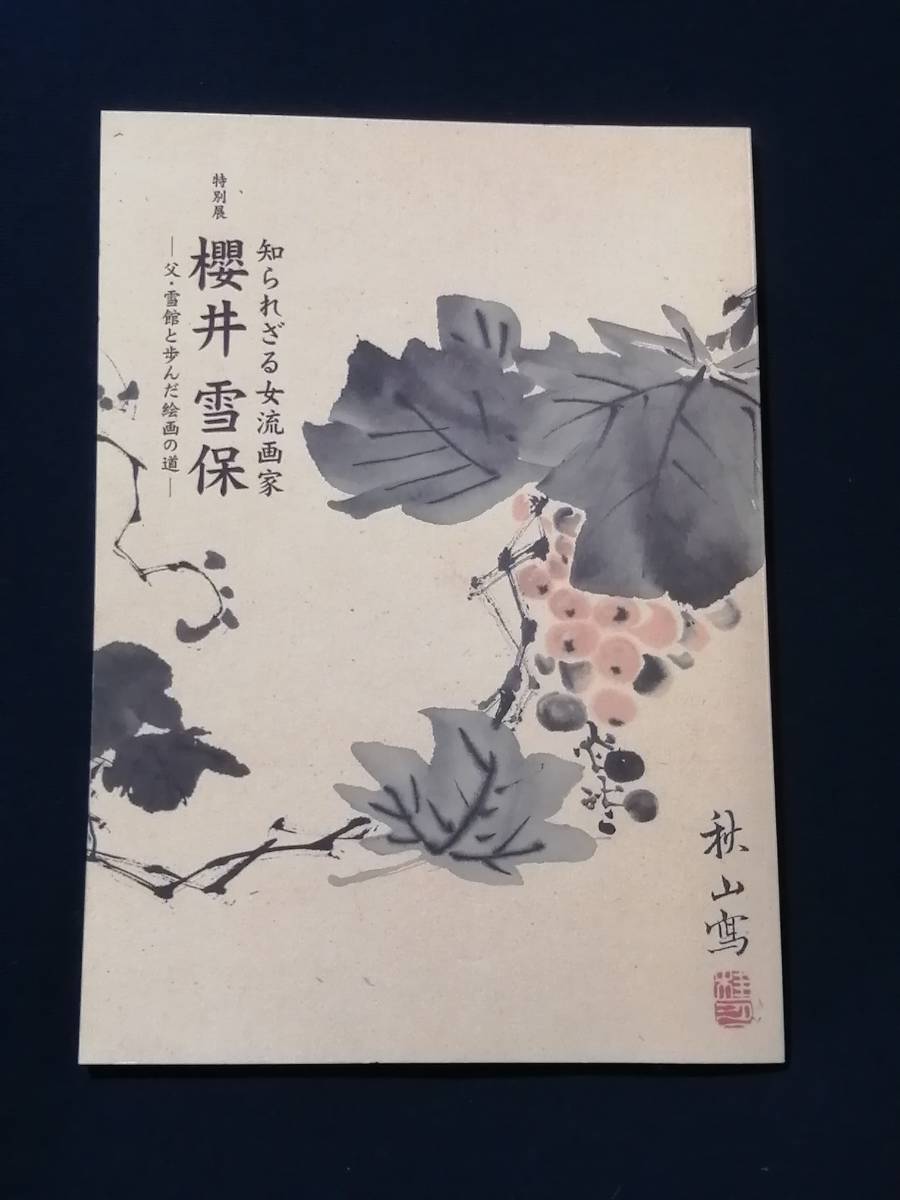 特別展
知られざる女流画家
櫻井 雪保
―父・雪館と歩んだ絵画の道―
秋山寫